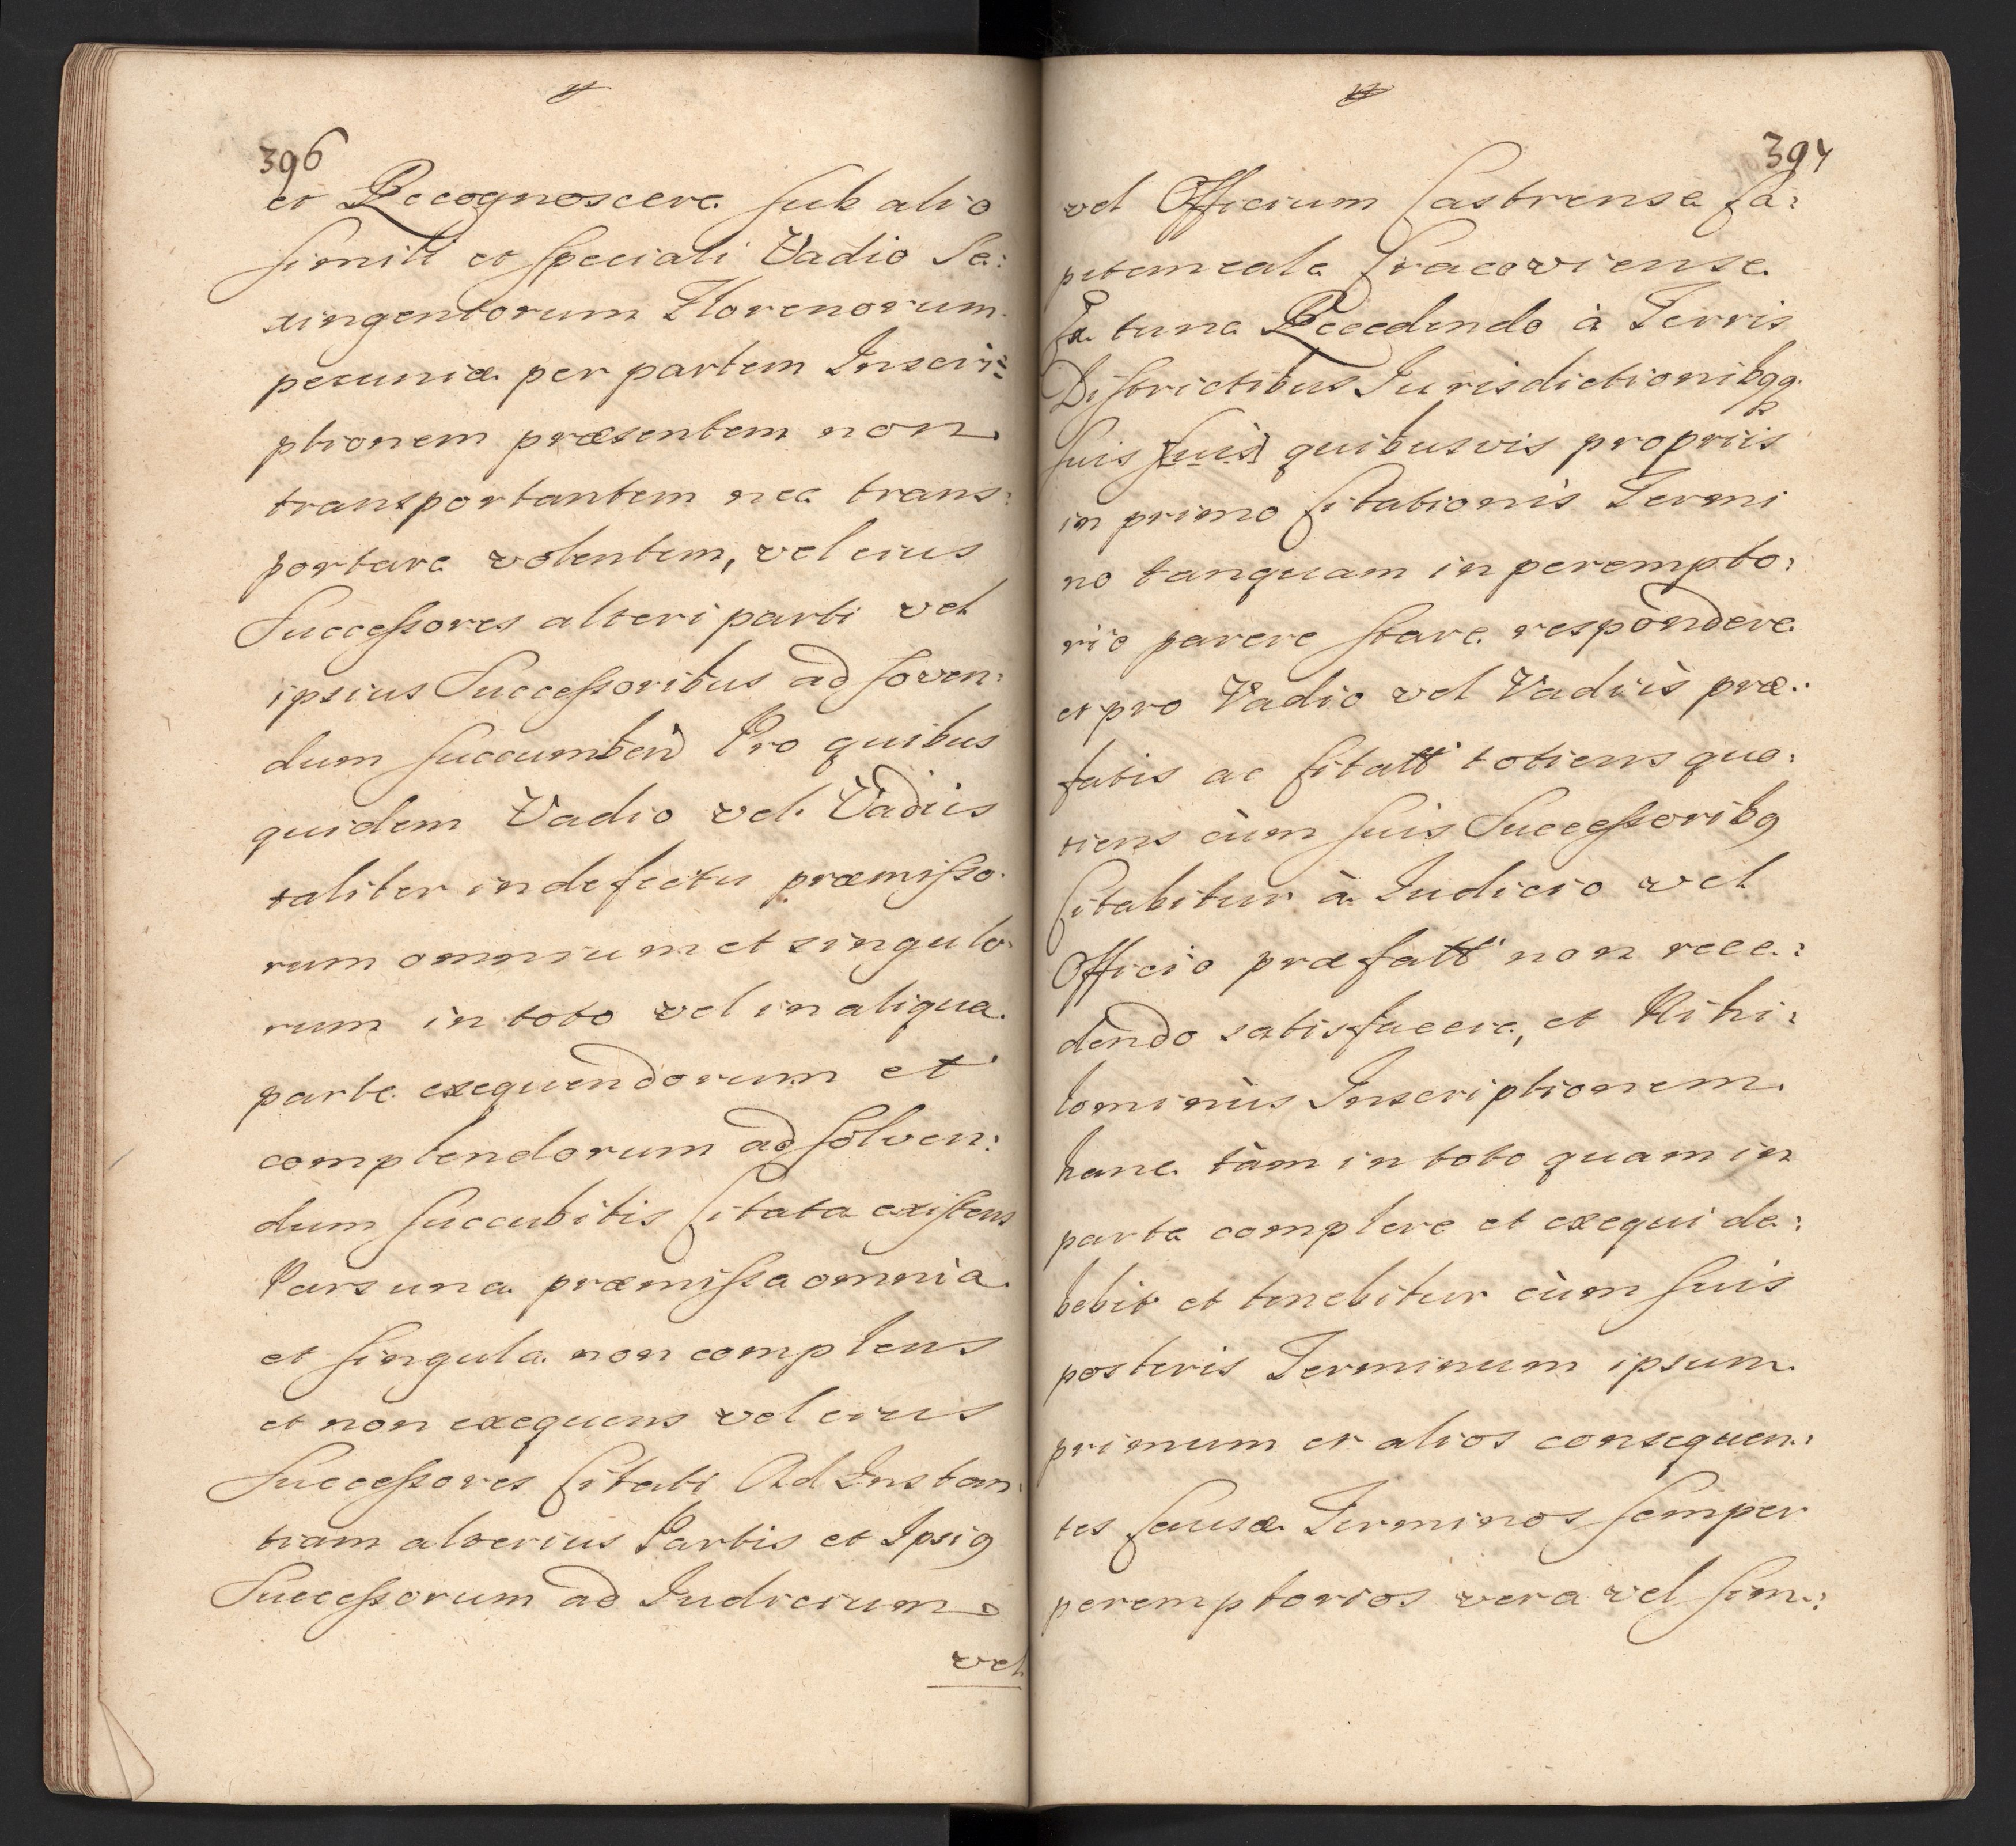 396
et Recognoscere sub alio
simili et speciali Vadio Se:
xingentorum Florenorum
pecuniæ per partem Inscri:
ptionem præsentem non
transportantem nec trans:
portare volentem, vel eius
Successores alteri parti vel
ipsius Successoribus ad soven:
dum succumben̄d Pro quibus
quidem Vadio vel Vadiis
taliter in defectu præmisso
rum omnium et singulo
rum in toto vel in aliqua
parte exequendorum et
complendorum ad solven:
dum succubitis Citata existens
Pars una præmissa omnia
et singula non complens
et non exequens vel eius
Successores Citati Ad Instan
tiam alterius Partis et Ipsi9
Successorum ad Iudicium
vel
397
vel Officium Castrense Ca:
pitaneale Cracoviense
Ex tunc Recedendo à Terris
Districtibus Iurisdictionibqq
suis [suis] quibusvis propriis
in primo Citationis Termi
no tanquam in perempto:
rio parere stare respondere
et pro Vadio vel Vadiis præ:
fatis ac Citatt totiens quo:
tiens cùm suis Successorib9
Citabitur à Iudicio vel
Officio præfatt non rece:
dendo satisfacere, et Nihi:
lominùs Inscriptionem
hanc tàm in toto quam in
parte complere et exequi de:
bebit et tenebitur cùm suis
posteris Terminum ipsum
primum et alios consequen:
tes Causæ Terminos semper
peremptorios vera vel sim: